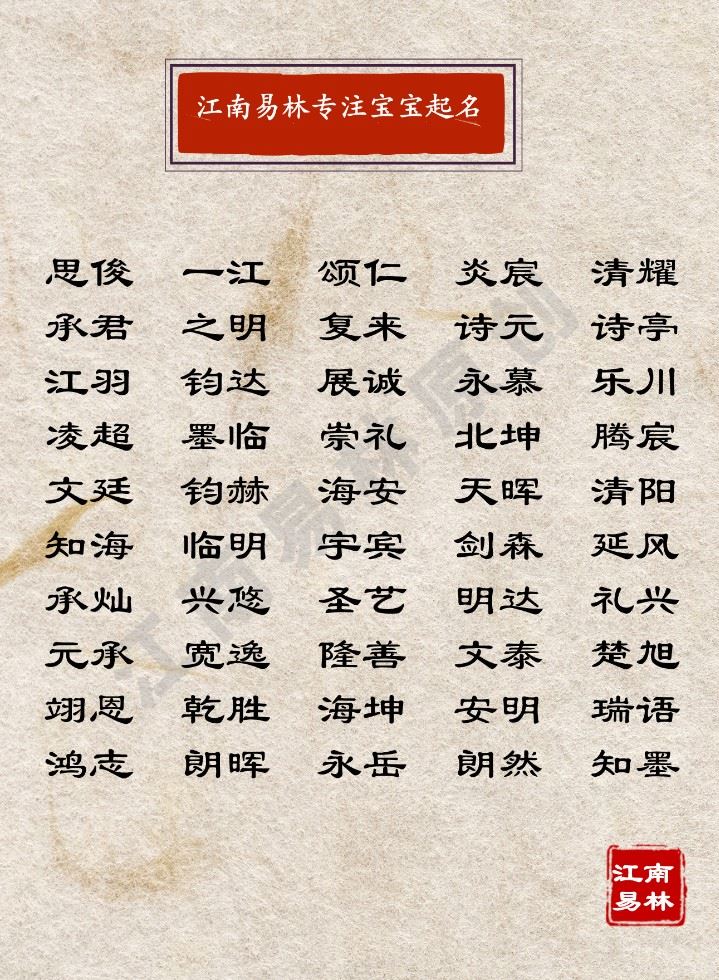 江南易林专注宝宝起名
思俊 一江 颂仁 炎宸 清耀
承君 之明 复来 诗元 诗亭
江羽 钧达 展诚 永慕 乐川
凌超 墨临 崇礼 北坤 腾宸
文廷 钧赫 海安 天晖 清阳
知海 临明 宇宾 剑森 延风
承灿 兴悠 圣艺 明达 礼兴
元承 宽逸 隆善 文泰 楚旭
翊恩 乾胜 海坤 安明 瑞语
鸿志 朗晖 永岳 朗然 知墨
江南易林原创
江南
易林